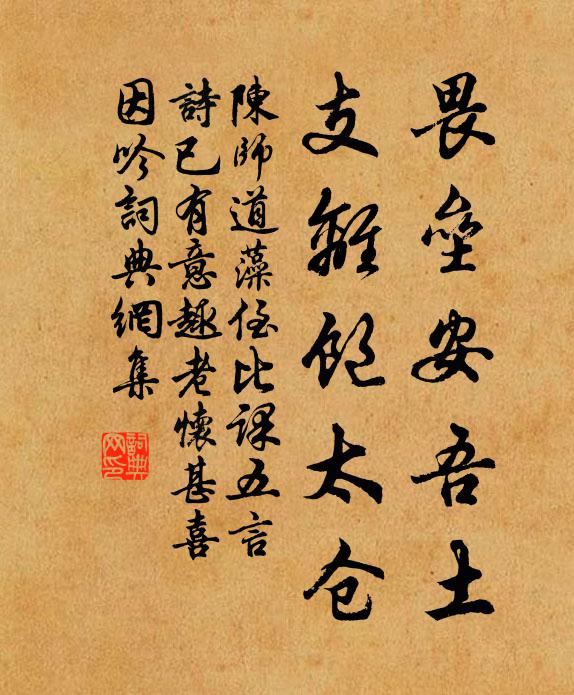 畏壘安吾土
支離飽太仓
陳師道藻侄比課五言
詩已有意趣老懷甚喜
因吟詞典網集
詞典网印